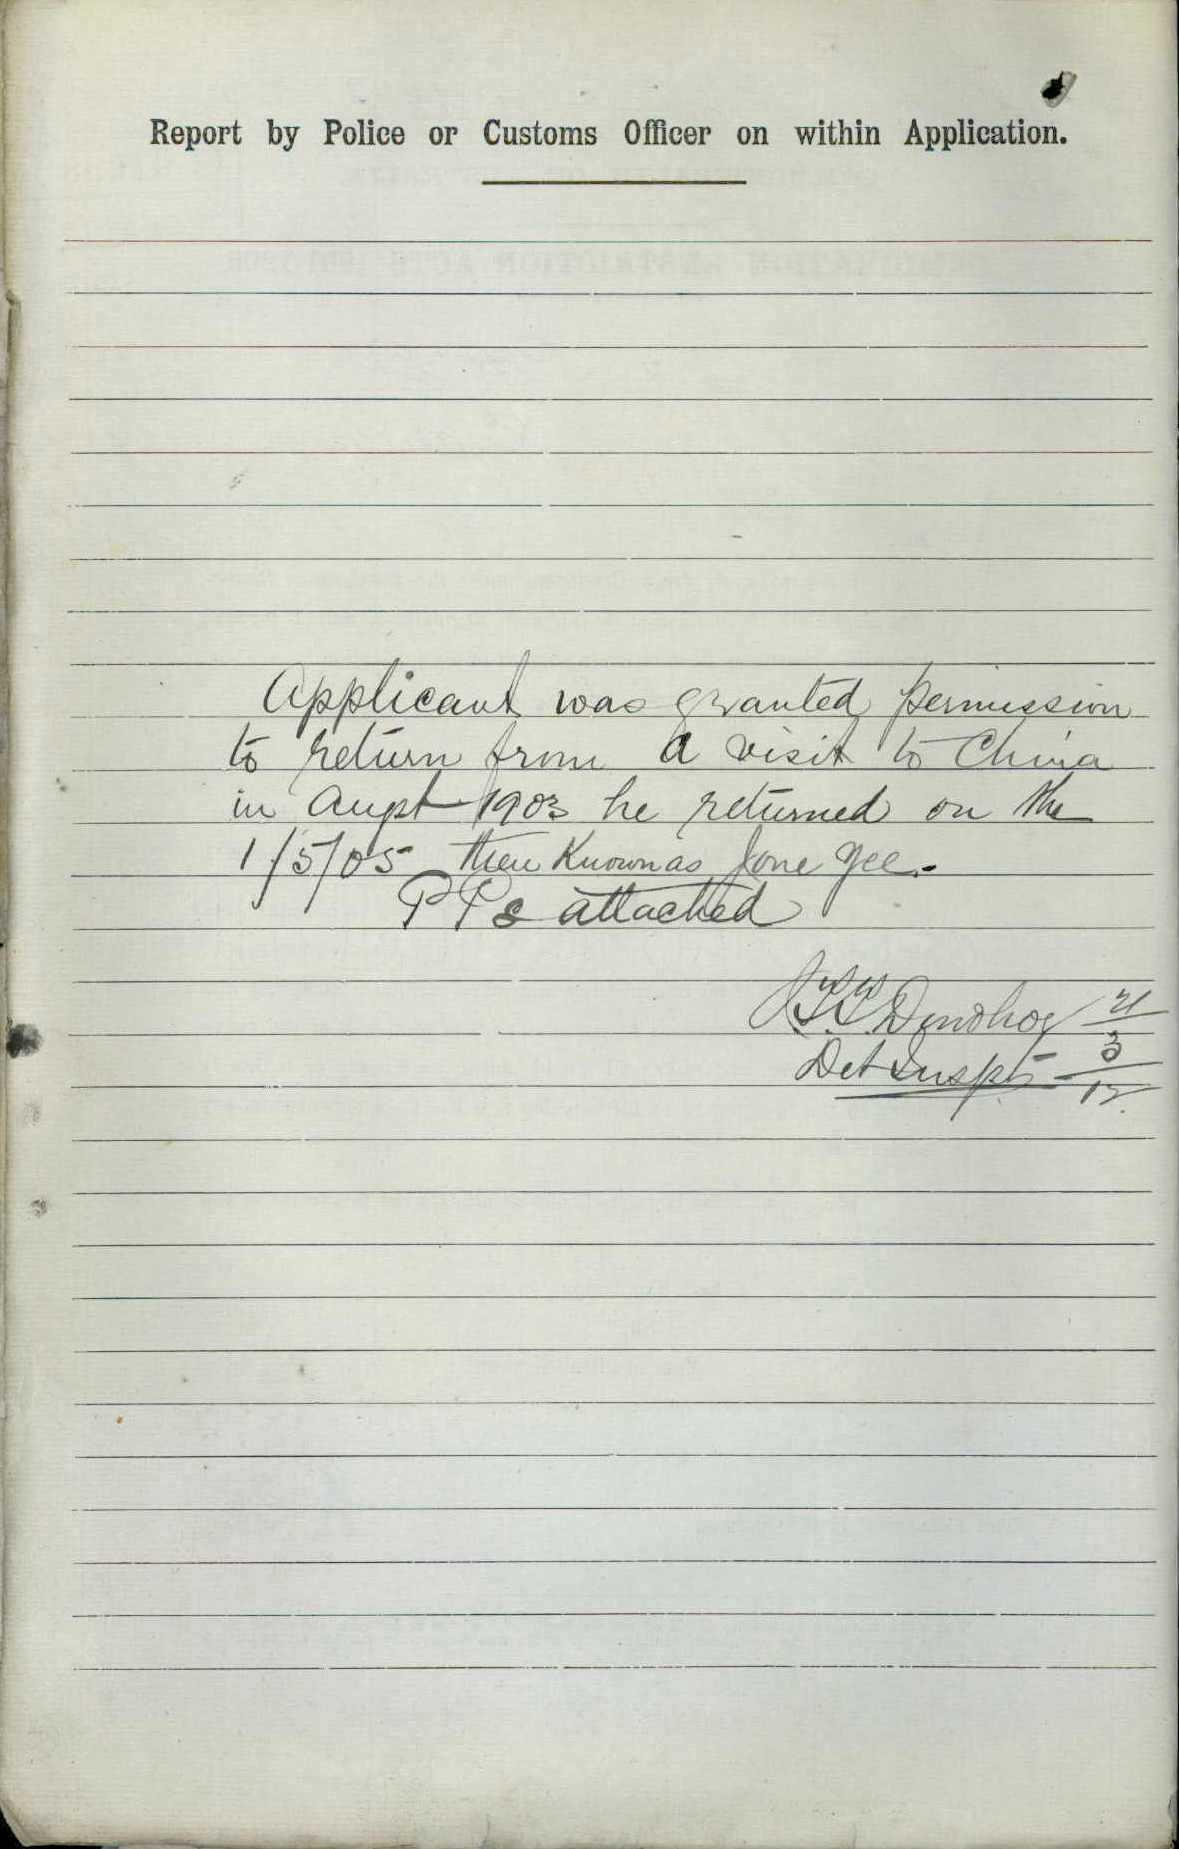 Report by Police or Customs Officer on within Application.
Applicant was granted permission
to return from a visit to China
in Augst 1903 he returned on the
1/5/05 then Known as Jone Yee.
P Ps attached
Donohoe 21
Det Inspt 3
12